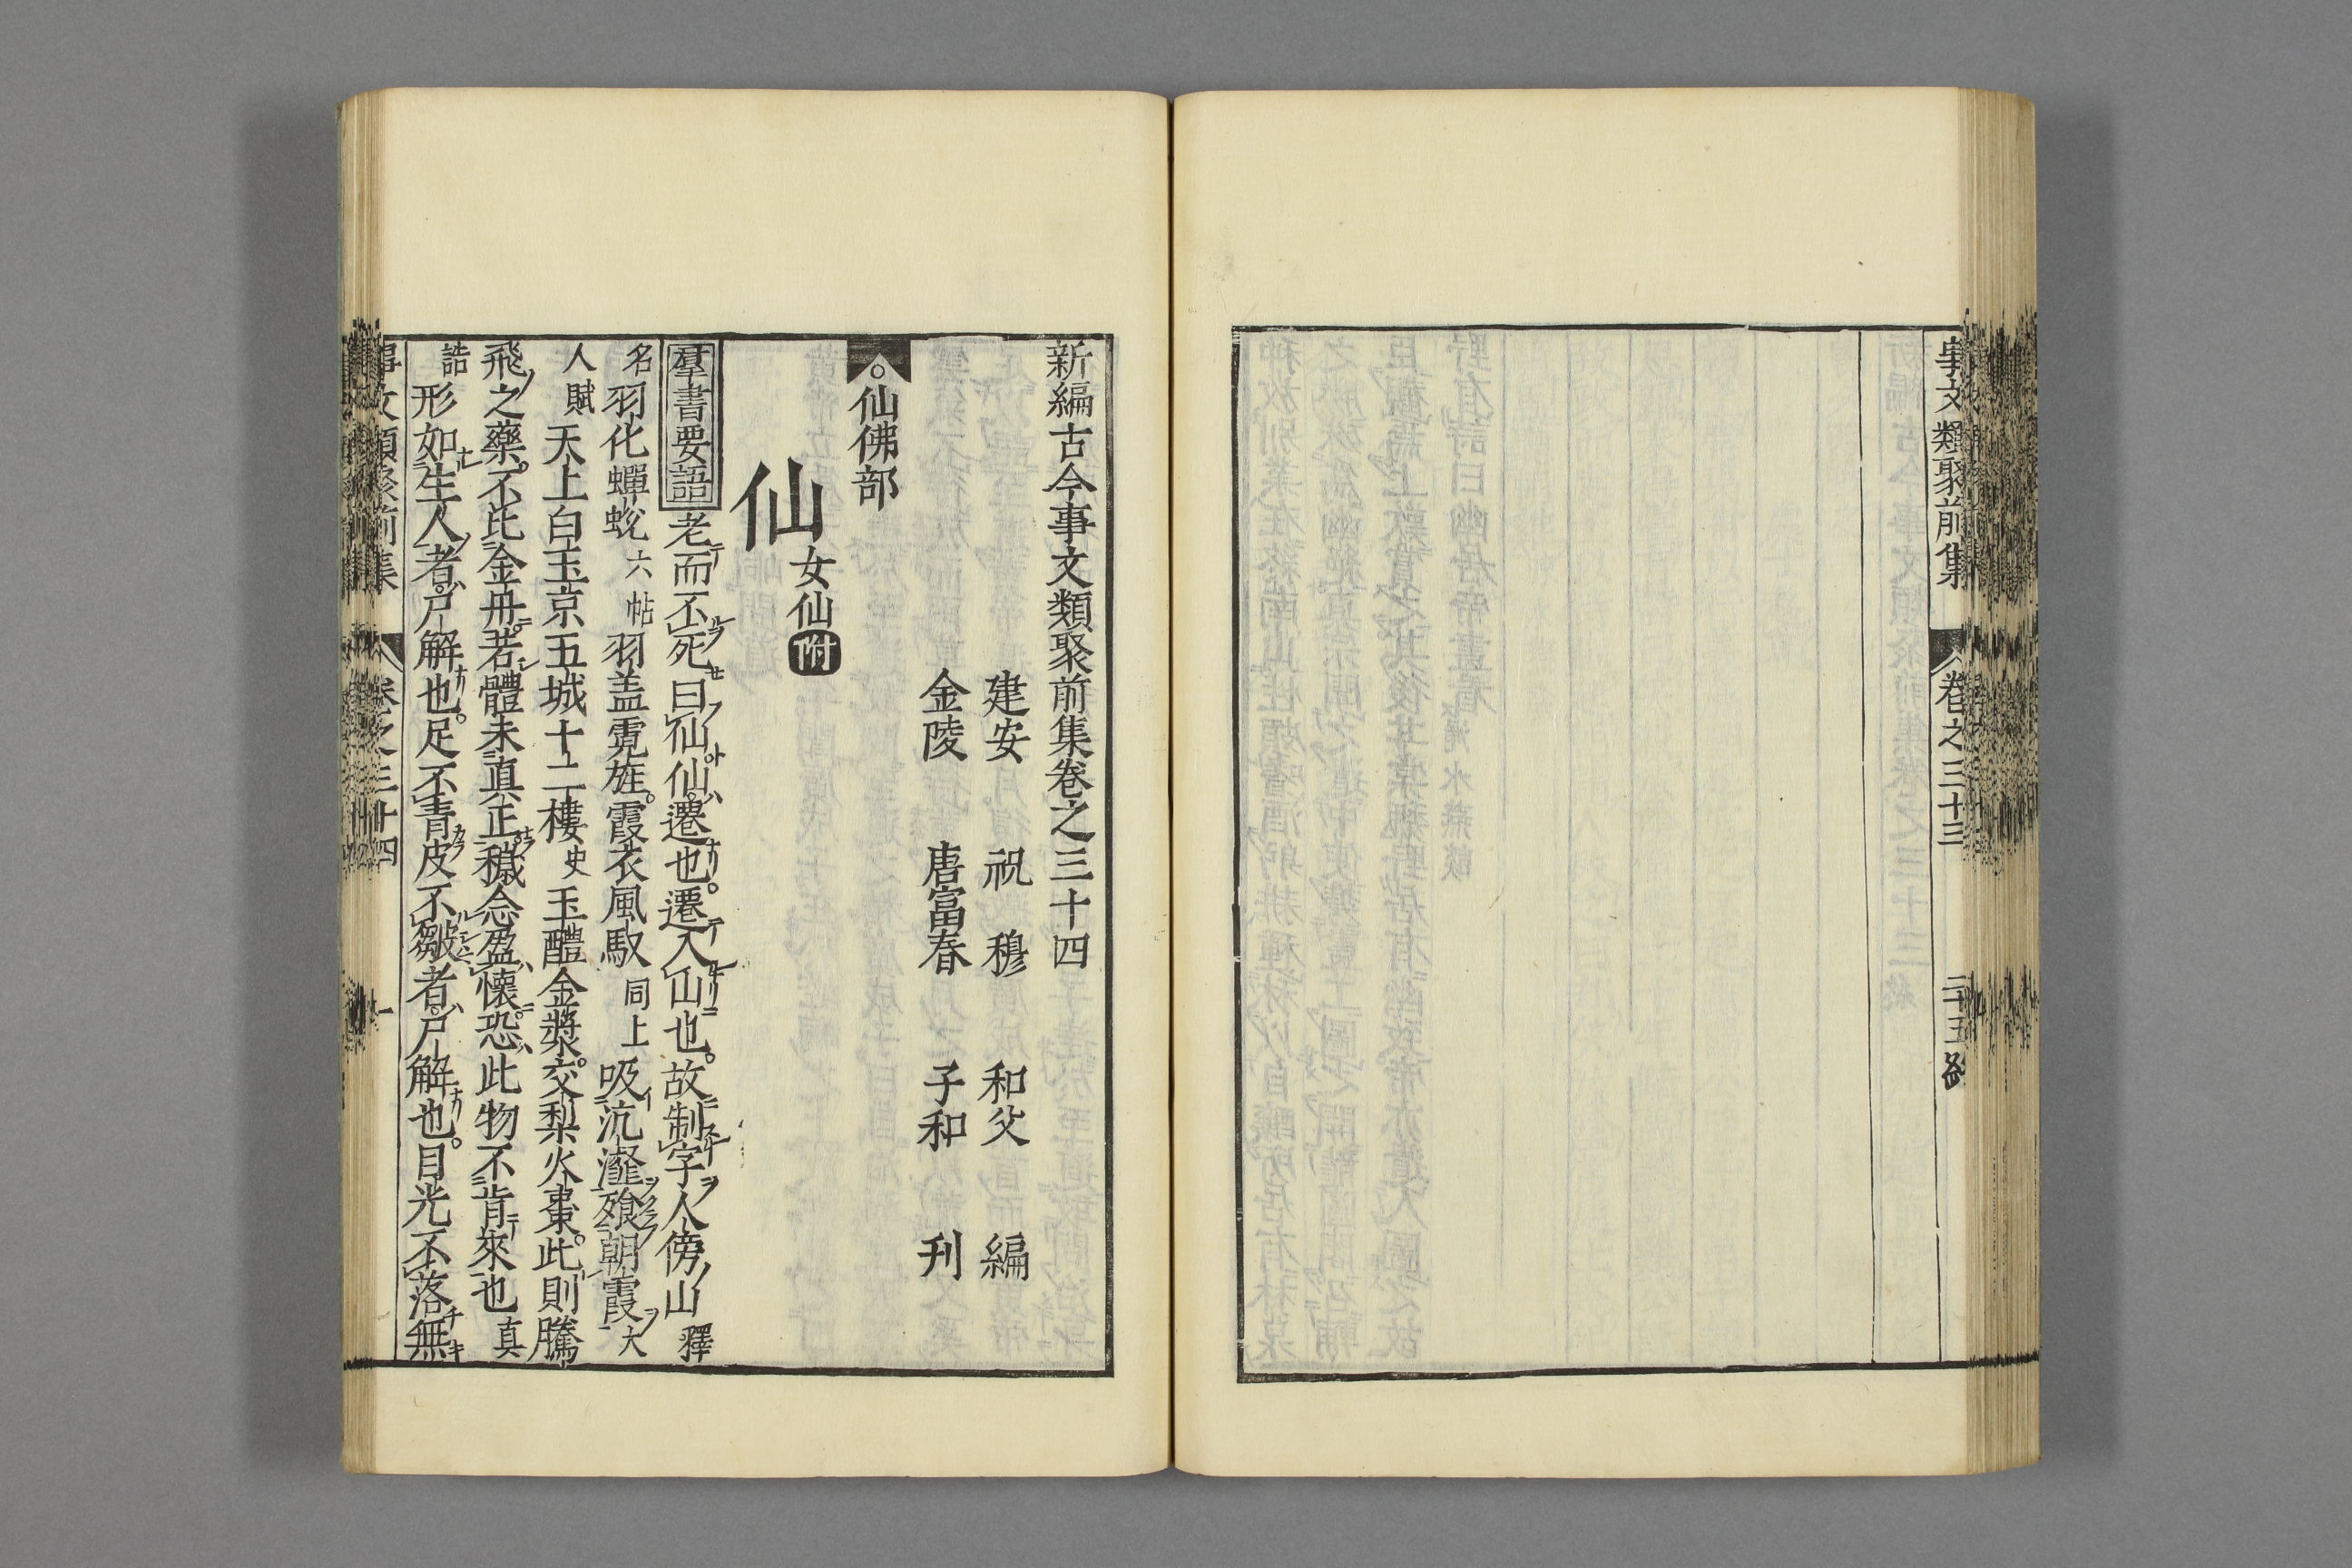 事文類聚前集 卷之三十三 二十五終
新編古今事文類聚前集卷之三十四
建安 祝 穆 和父 編
金陵 唐富春 子和 刊
○仙佛部
仙 女仙附
羣書要語 老而不死曰仙仙遷也遷入山也故制字人傍山 釋
名 羽化蟬蛻 六帖 羽盖霓旌霞衣風馭 同上 吸沆瀣飱朝霞 大
人賦 天上白玉京五城十二樓 史 玉醴金漿交梨火棗此則騰
飛之藥不比金丹若體未真正穢念盈懷恐此物不肯來也 真
誥 形如生人者尸解也足不青皮不皺者尸解也目光不落無
事文類聚前集 卷之三十四 一